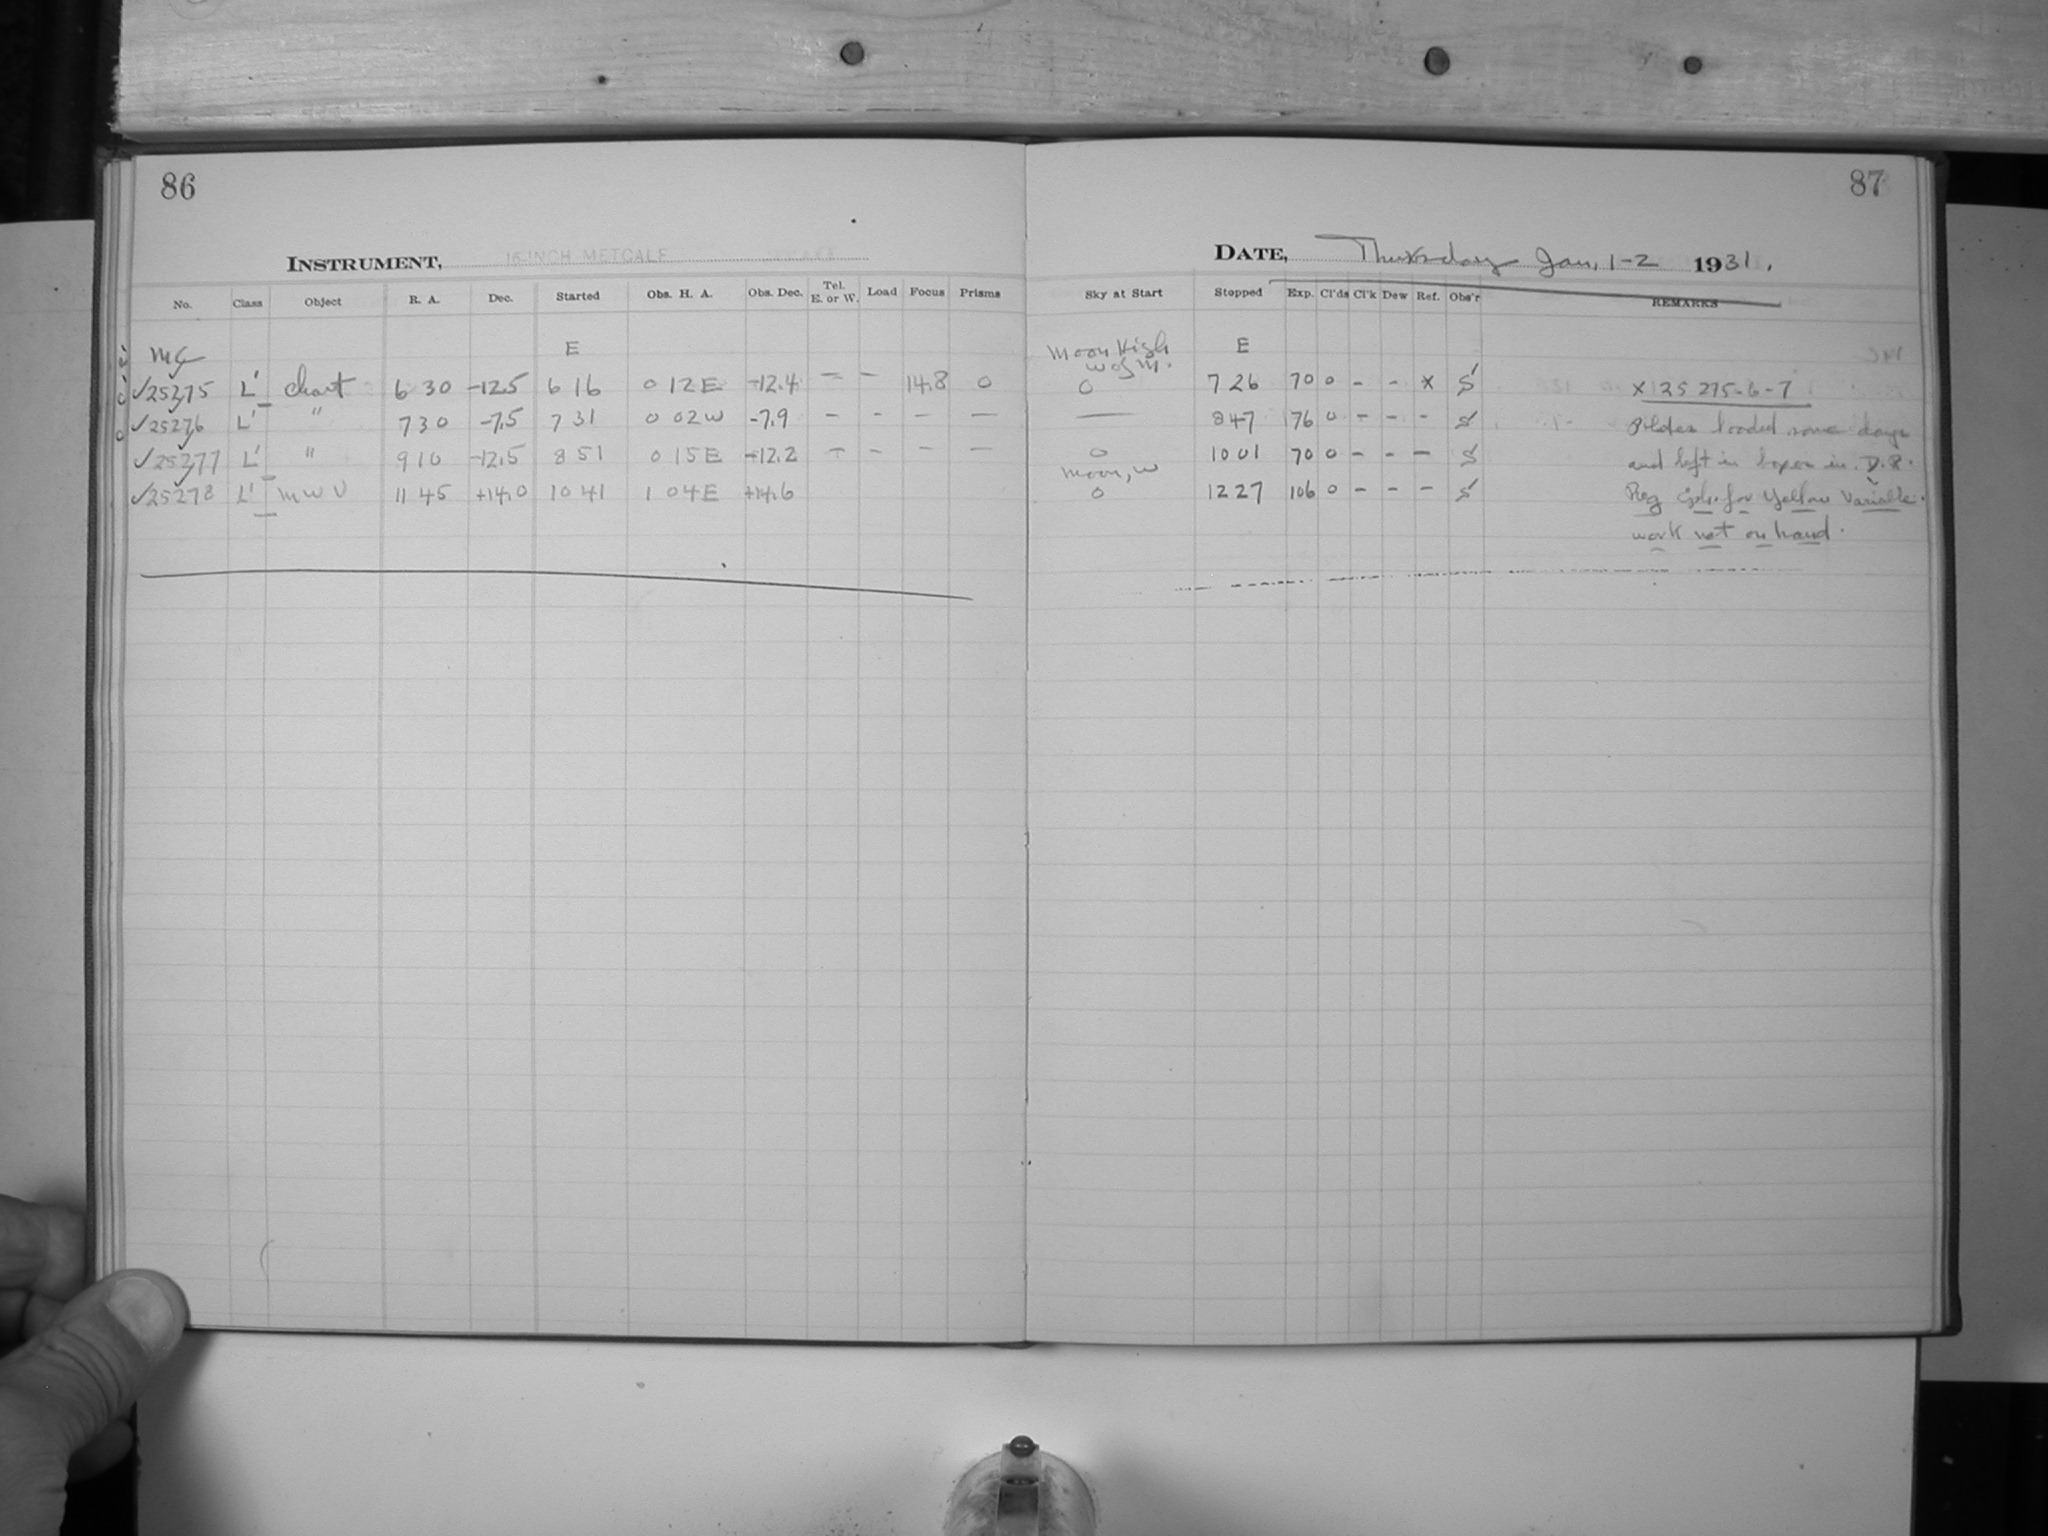 86
87
INSTRUMENT, 16-INCH METCALF
DATE, Thursday Jan. 1-2 1931.
No. Class Object R. A. Dec. Started Obs. H. A. Obs. Dec. Tel. E. or W. Load Focus Prisms Sky at Start Stopped Exp. Cl'ds Cl'k Dew Ref. Obs'r REMARKS
MC E Moon High W of M. E
✓25275 L' Chart 6 30 -12.5 6 16 0 12 E -12.4 — — 14.8 0 0 7 26 70 0 - - x S x 125 275-6-7
✓25276 L' " 7 30 -7.5 7 31 0 02 W -7.9 - - - — — 8 47 76 0 - - - S loaded some days
✓25277 L' " 9 10 -12.5 8 51 0 15 E -12.2 - - - — 0 10 01 70 0 - - - S and left in boxes in D.R.
✓25278 L' MWV 11 45 +14.0 10 41 1 04 E +14.6 Moon, W 0 12 27 106 0 - - - S Reg for Yellow Variable
work not on hand.